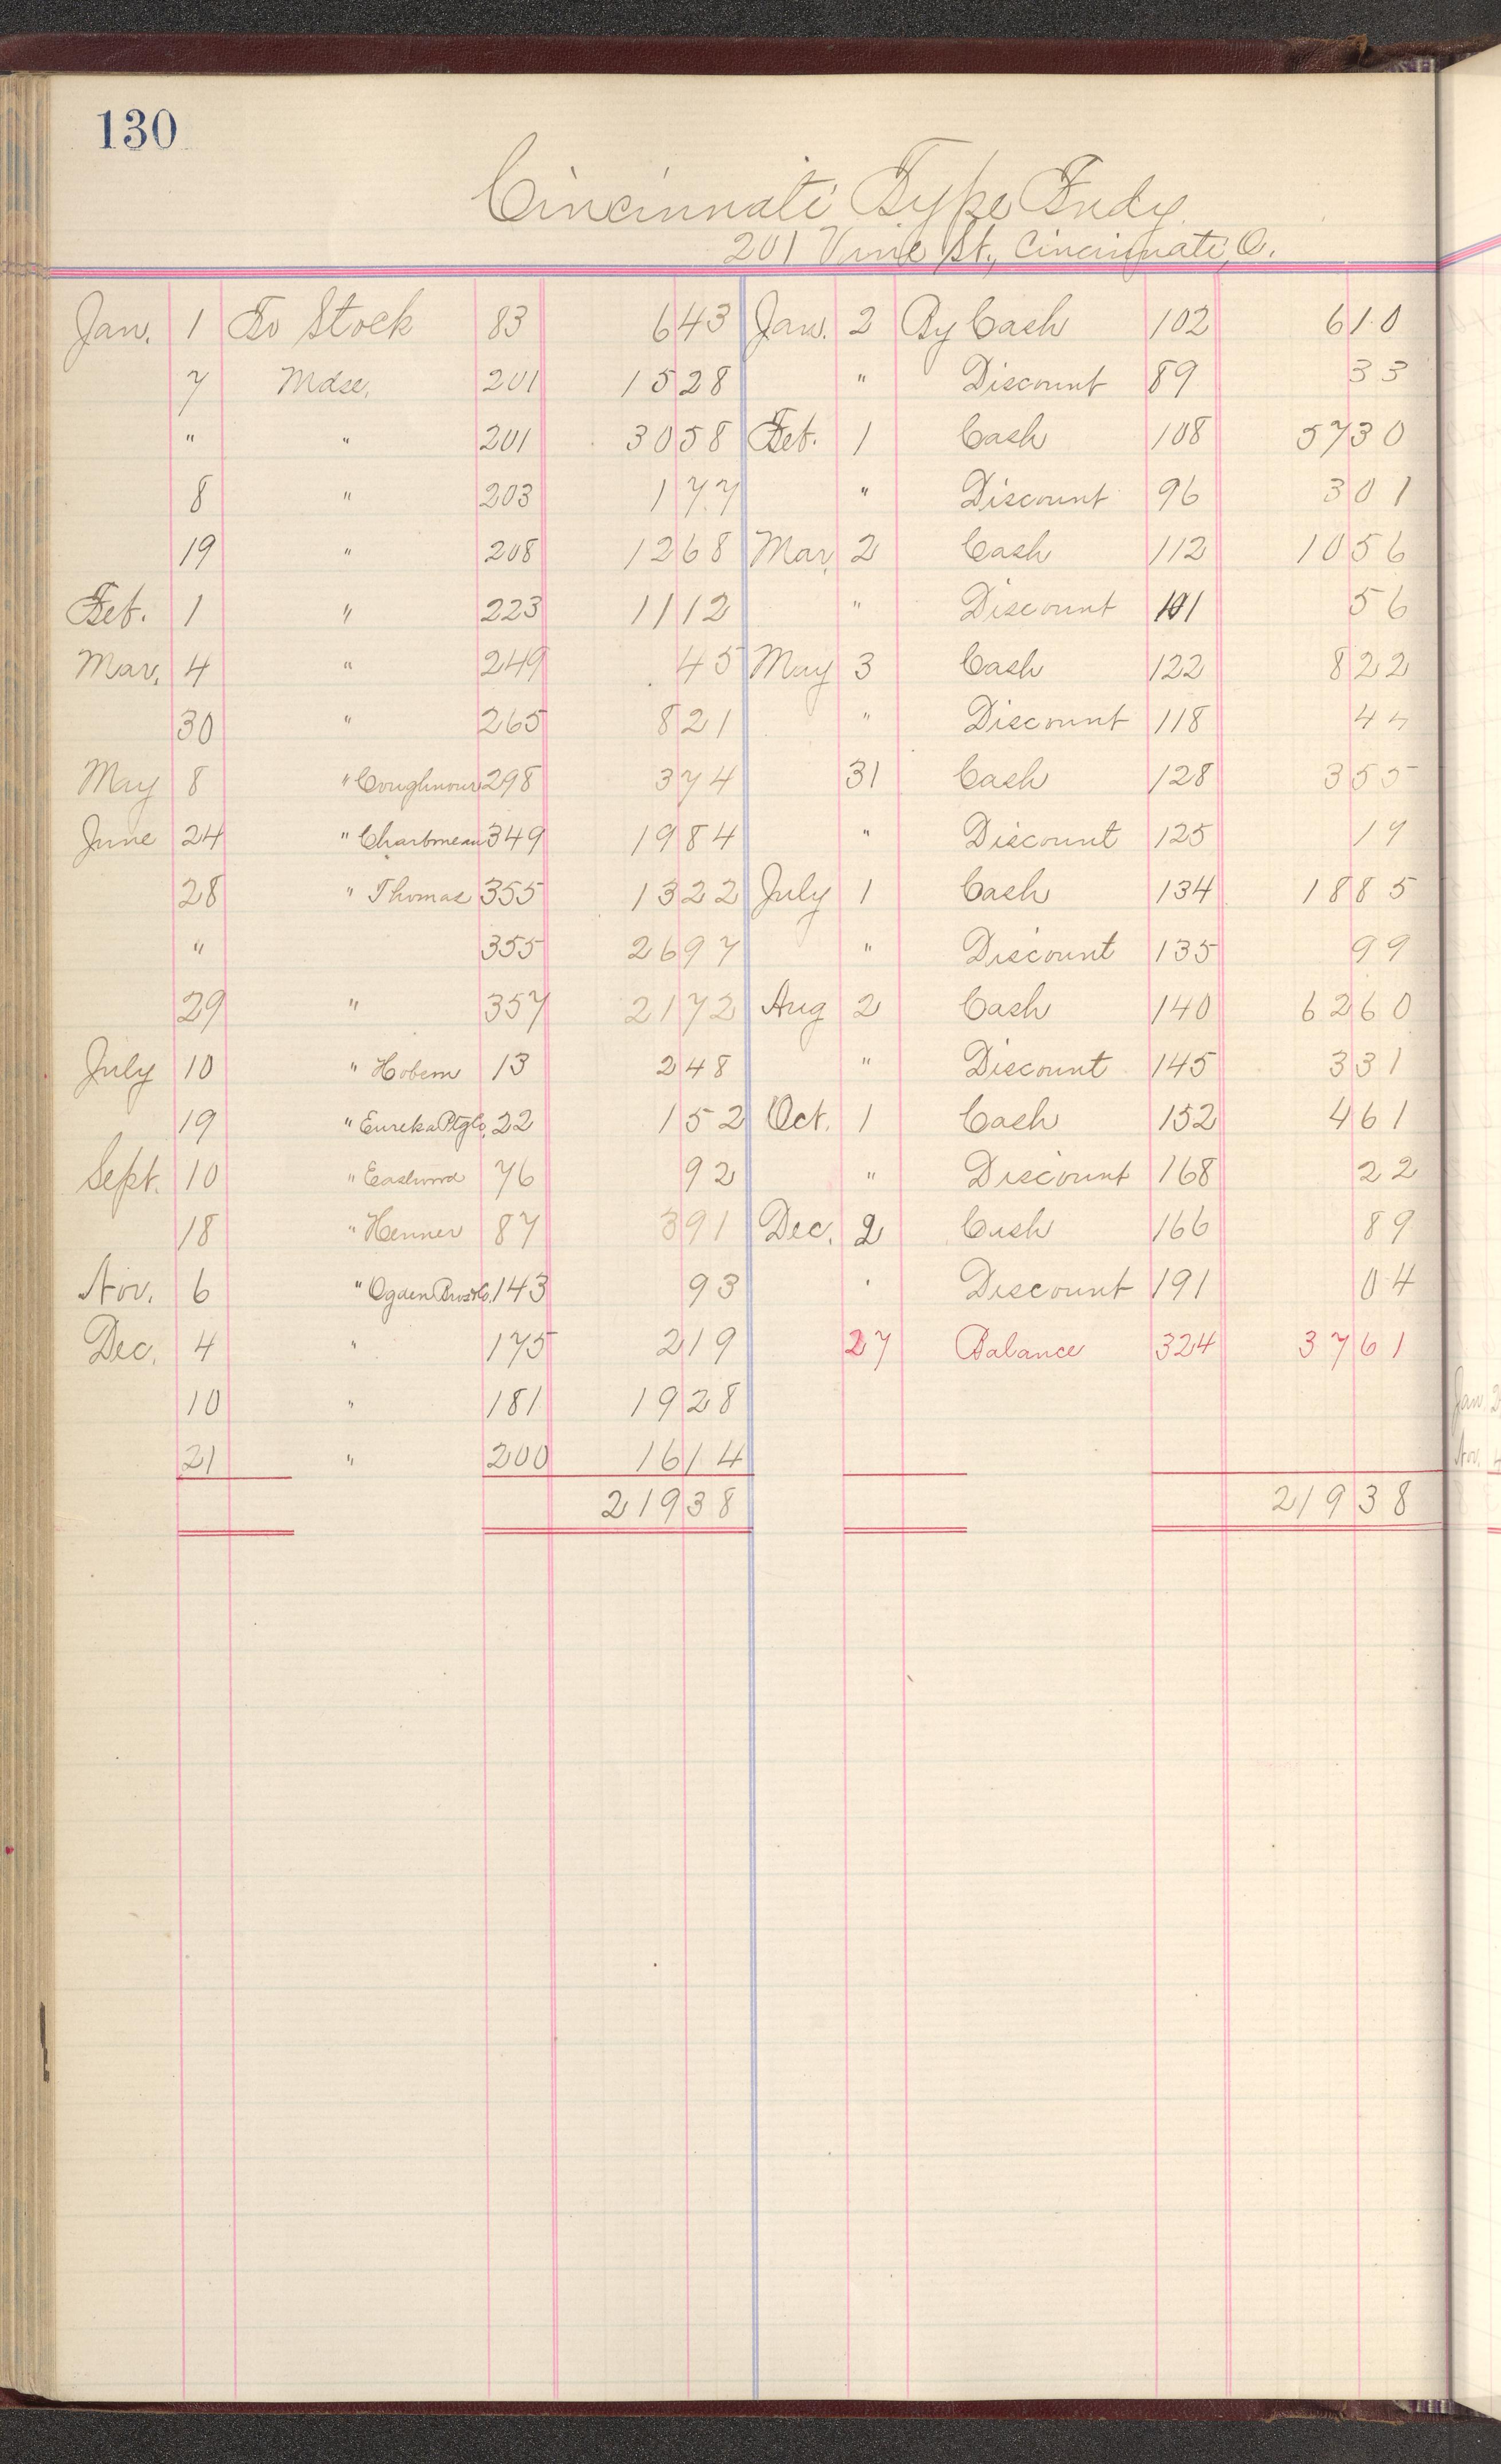 130
Cincinnati Type Fndy.
201 Vine St., Cincinnati, O.
Jan. 1 To Stock 83 6 43 Jan. 2 By Cash 102 6 10
7 Mdse. 201 15 28 " Discount 89 33
" " 201 30 58 Feb. 1 Cash 108 57 30
8 " 203 1 77 " Discount 96 3 01
19 " 208 12 68 Mar. 2 Cash 112 10 56
Feb. 1 " 223 11 12 " Discount 101 56
Mar. 4 " 249 45 May 3 Cash 122 8 22
30 " 265 8 21 " Discount 118 44
May 8 " Coughnour 298 3 74 31 Cash 128 3 55
June 24 " 349 19 84 " Discount 125 19
28 " Thomas 355 13 22 July 1 Cash 134 18 85
" 355 26 97 " Discount 135 99
29 " 357 21 72 Aug 2 Cash 140 62 60
July 10 " 13 2 48 " Discount 145 3 31
19 " Eureka Ptg Co. 22 1 52 Oct. 1 Cash 152 4 61
Sept. 10 " Eastwood 76 92 " Discount 168 22
18 " Henner 87 3 91 Dec. 2 Cash 166 89
Nov. 6 " Ogden Bros & Co. 143 93 " Discount 191 04
Dec. 4 " 175 2 19 27 Balance 324 37 61
10 " 181 19 28
21 " 200 16 14
219 38 219 38
Jan. 2
Nov. 4